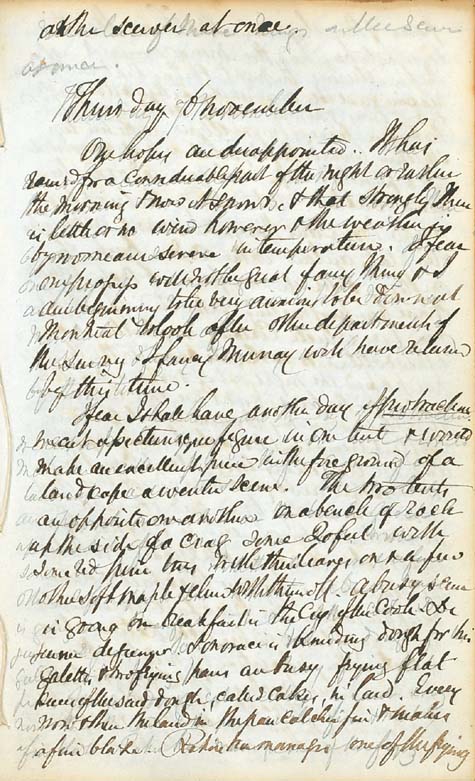 at the sewer at once.
Thursday November
Our hopes are disappointed. It has
rained for a considerable part of the night or rather
the morning & now it & that strongly. There
is little or no wind however & the weather is
by no means severe in temperature. I fear
our progress will not be great if any thing & I
am beginning to be very anxious to be down at
Montreal to look after the other department of
the Survey & I fancy Murray will have returned
by this time.
I fear I shall have another day of protraction
We cut a picturesque figure in our tent & would
make an excellent piece in the foreground of a
landscape a winter scene. The two tents
are opposite one another on a bench of rock
up the side of a crag some 20 feet with
some red pine trees with their leaves on & a few
others soft maple & elm without them. A busy scene
is going on breakfast is the cry of the Cook &
. Honorace is kneading dough for his
Galettes & two frying pans are busy frying flat
pieces of the said dough, called Cakes, in lard. Every
now & then the lard in the pan catches fire & makes
a fine blaze. manages one of the frying